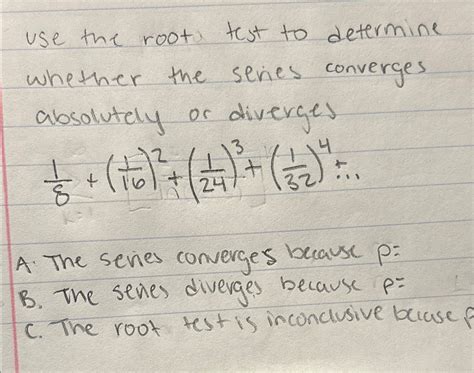 use the root test to determine
whether the series converges
absolutely or diverges
1/8 + (1/16)^2 + (1/24)^3 + (1/32)^4 + ...
A. The series converges because ρ=
B. The series diverges because ρ=
C. The root test is inconclusive becuase ρ